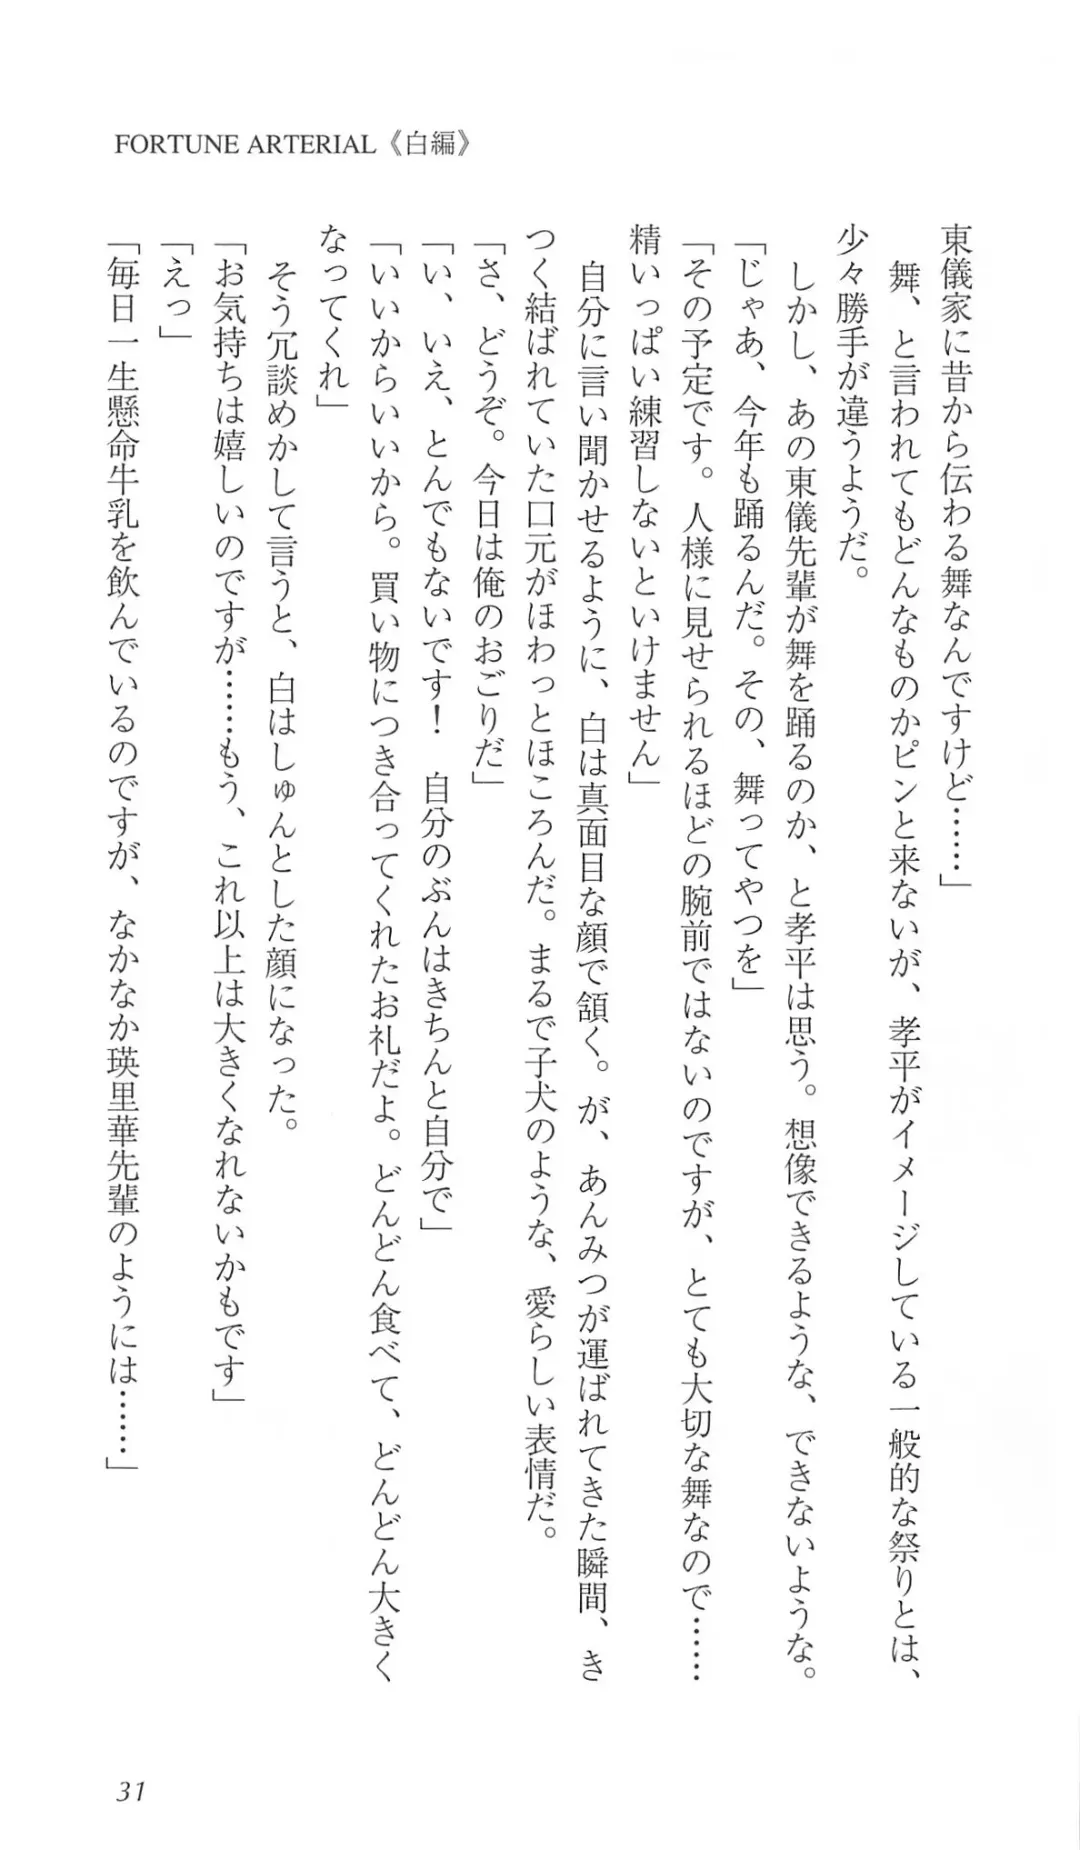 FORTUNE ARTERIAL《白編》
東儀家に昔から伝わる舞なんですけど……」
　舞、と言われてもどんなものかピンと来ないが、孝平がイメージしている一般的な祭りとは、
少々勝手が違うようだ。
　しかし、あの東儀先輩が舞を踊るのか、と孝平は思う。想像できるような、できないような。
「じゃあ、今年も踊るんだ。その、舞ってやつを」
「その予定です。人様に見せられるほどの腕前ではないのですが、とても大切な舞なので……
精いっぱい練習しないといけません」
　自分に言い聞かせるように、白は真面目な顔で頷く。が、あんみつが運ばれてきた瞬間、き
つく結ばれていた口元がほわっとほころんだ。まるで子犬のような、愛らしい表情だ。
「さ、どうぞ。今日は俺のおごりだ」
「い、いえ、とんでもないです！　自分のぶんはきちんと自分で」
「いいからいいから。買い物につき合ってくれたお礼だよ。どんどん食べて、どんどん大きく
なってくれ」
　そう冗談めかして言うと、白はしゅんとした顔になった。
「お気持ちは嬉しいのですが……もう、これ以上は大きくなれないかもです」
「えっ」
「毎日一生懸命牛乳を飲んでいるのですが、なかなか瑛里華先輩のようには……」
31